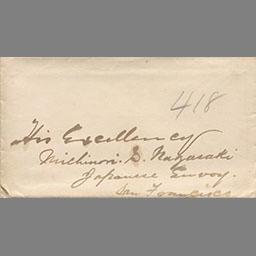 418
His Excellency
Michinori S. Nagasaki
Japanese Envoy.
San Francisco